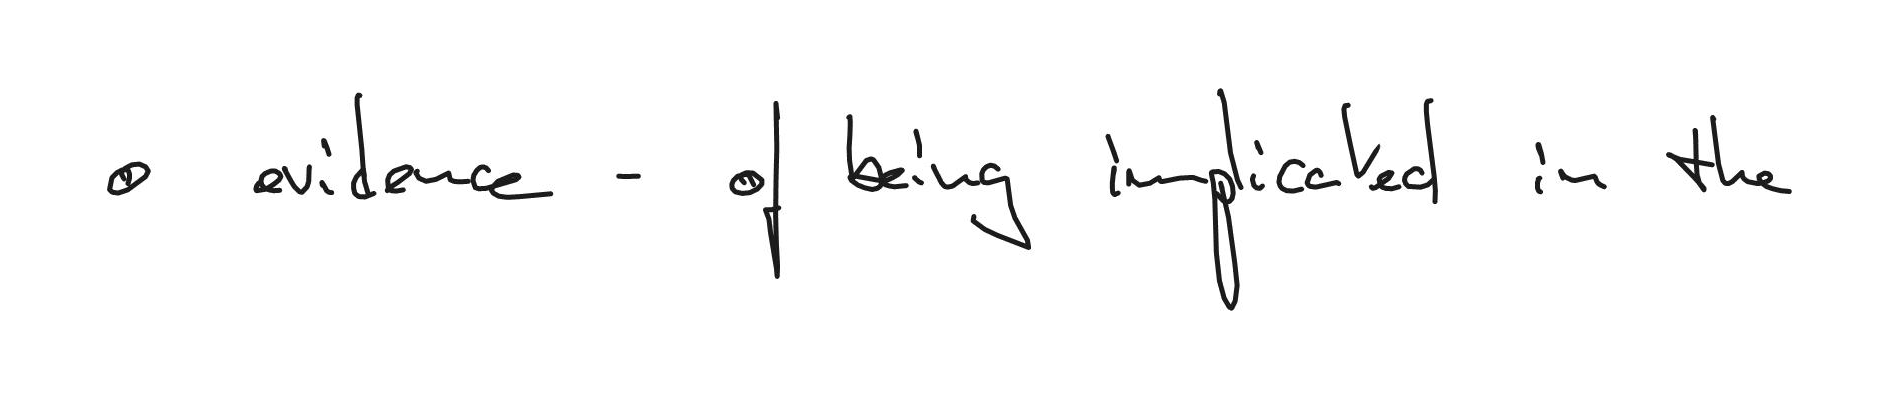 a evidence - of being implicated in the